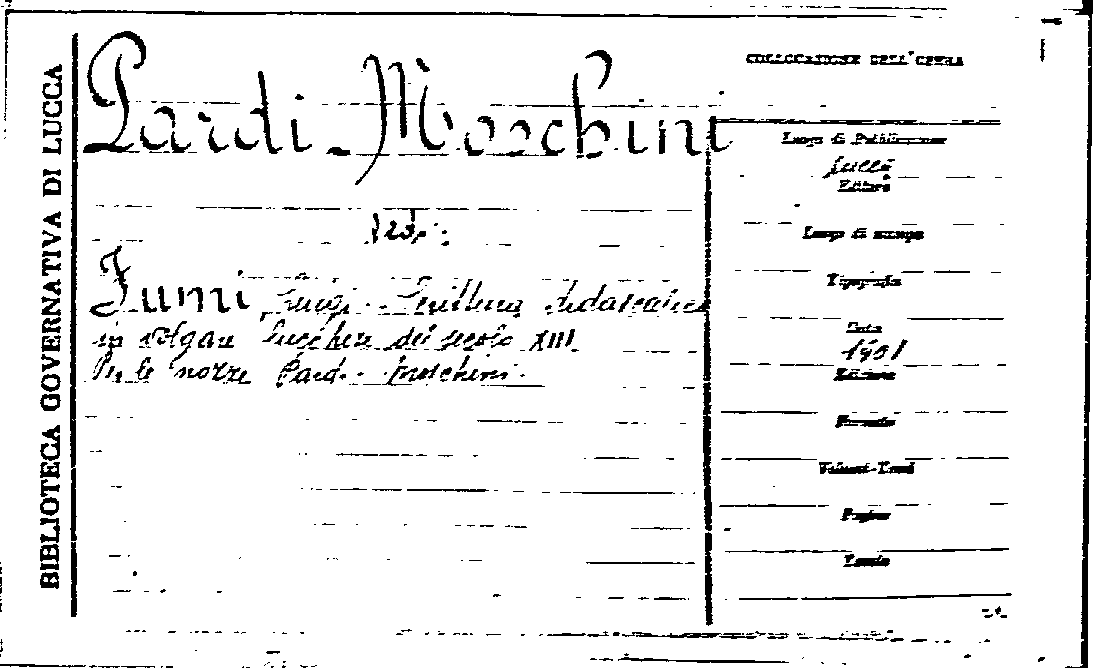 BIBLIOTECA GOVERNATIVA DI LUCCA
Pardi-Moschini
Ved.:
Fumi Luigi. Scrittura didascalica
in volgare lucchese del secolo XIII
Per le nozze Pardi-Moschini.
COLLOCAZIONE DELL'OPERA
Luogo di Pubblicazione
Lucca
Editore
Luogo di stampa
Tipografia
Data
1901
Edizione
Formato
Volumi-Tomi
Pagine
Tavole